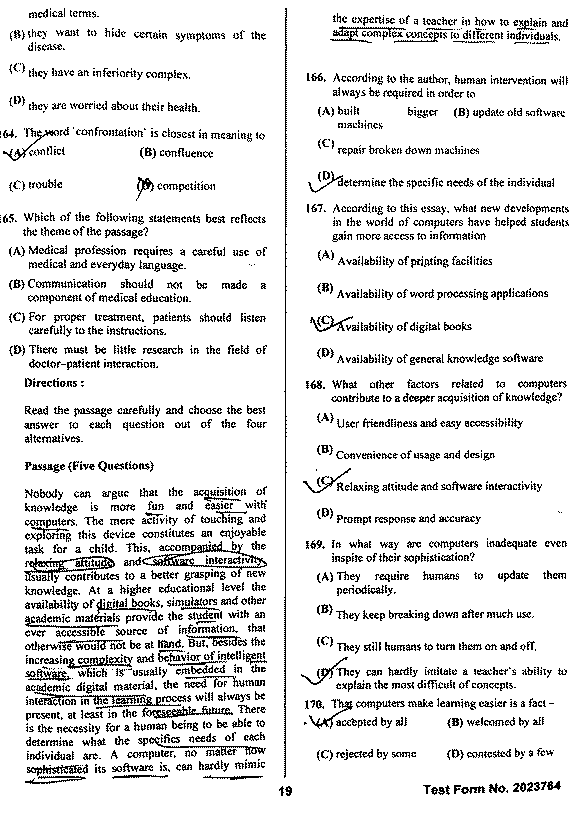 medical terms.
(B) they want to hide certain symptoms of the
disease.
(C) they have an inferiority complex.
(D) they are worried about their health.
164. The word 'confrontation' is closest in meaning to
(A) conflict (B) confluence
(C) trouble (D) competition
165. Which of the following statements best reflects
the theme of the passage?
(A) Medical profession requires a careful use of
medical and everyday language.
(B) Communication should not be made a
component of medical education.
(C) For proper treatment, patients should listen
carefully to the instructions.
(D) There must be little research in the field of
doctor–patient interaction.
Directions :
Read the passage carefully and choose the best
answer to each question out of the four
alternatives.
Passage (Five Questions)
Nobody can argue that the acquisition of
knowledge is more fun and easier with
computers. The mere activity of touching and
exploring this device constitutes an enjoyable
task for a child. This, accompanied by the
relaxing attitude and software interactivity,
usually contributes to a better grasping of new
knowledge. At a higher educational level the
availability of digital books, simulators and other
academic materials provide the student with an
ever accessible source of information, that
otherwise would not be at hand. But, besides the
increasing complexity and behavior of intelligent
software, which is usually embedded in the
academic digital material, the need for human
interaction in the learning process will always be
present, at least in the foreseeable future. There
is the necessity for a human being to be able to
determine what the specifics needs of each
individual are. A computer, no matter how
sophisticated its software is, can hardly mimic
the expertise of a teacher in how to explain and
adapt complex concepts to different individuals.
166. According to the author, human intervention will
always be required in order to
(A) built bigger (B) update old software
machines
(C) repair broken down machines
(D) determine the specific needs of the individual
167. According to this essay, what new developments
in the world of computers have helped students
gain more access to information
(A) Availability of printing facilities
(B) Availability of word processing applications
(C) Availability of digital books
(D) Availability of general knowledge software
168. What other factors related to computers
contribute to a deeper acquisition of knowledge?
(A) User friendliness and easy accessibility
(B) Convenience of usage and design
(C) Relaxing attitude and software interactivity
(D) Prompt response and accuracy
169. In what way are computers inadequate even
inspite of their sophistication?
(A) They require humans to update them
periodically.
(B) They keep breaking down after much use.
(C) They still humans to turn them on and off.
(D) They can hardly imitate a teacher's ability to
explain the most difficult of concepts.
170. That computers make learning easier is a fact –
(A) accepted by all (B) welcomed by all
(C) rejected by some (D) contested by a few
19
Test Form No. 2023764